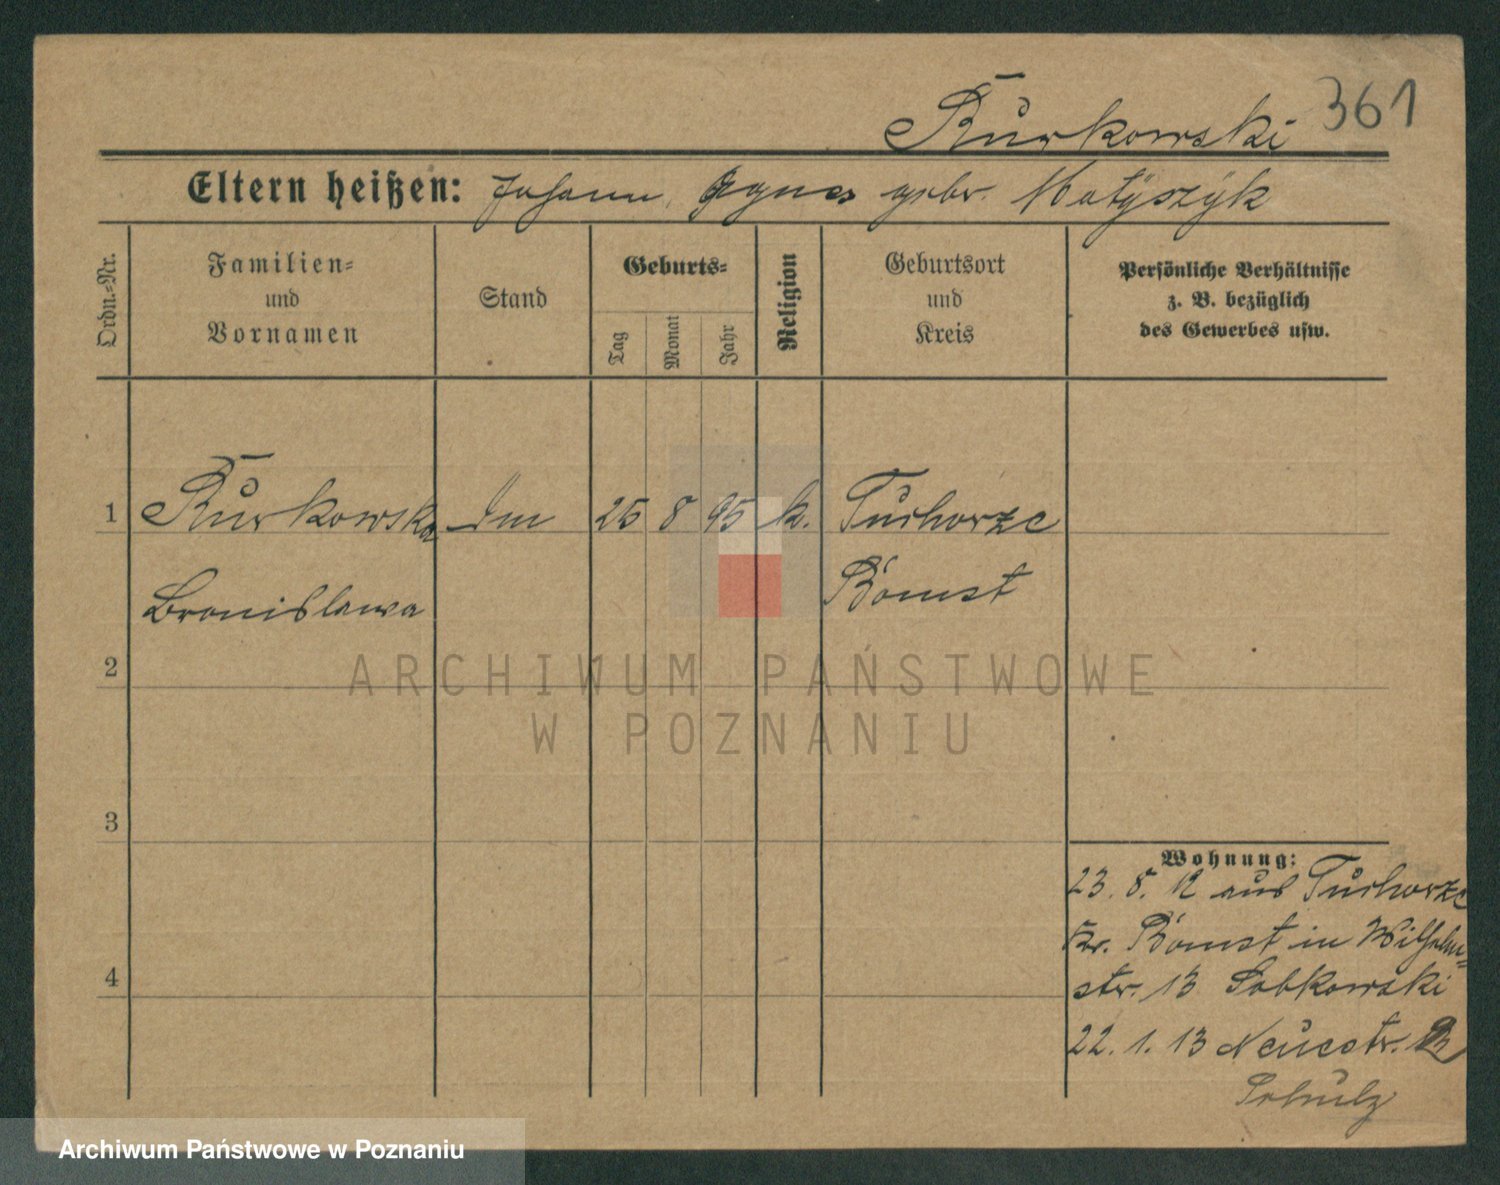 Kurkowski 361
Eltern heißen: Johann, Agnes gebr. Matÿszÿk
Ordn.-Nr.
Familien-
und
Vornamen
Stand
Geburts-
Tag
Monat
Jahr
Religion
Geburtsort
und
Kreis
Persönliche Verhältnisse
z. B. bezüglich
des Gewerbes usw.
1 Kurkowska 8 95 k. Tuchorze
Bronislawa Bomst
2
ARCHIWUM PAŃSTWOWE
W POZNANIU
3
Wohnung:
23. 8. 12 aus Tuchorze
Kr. Bomst in Wilhelm-
str. 13 Sobkowski
4
22. 1. 13 Neuestr.
Schulz
Archiwum Państwowe w Poznaniu